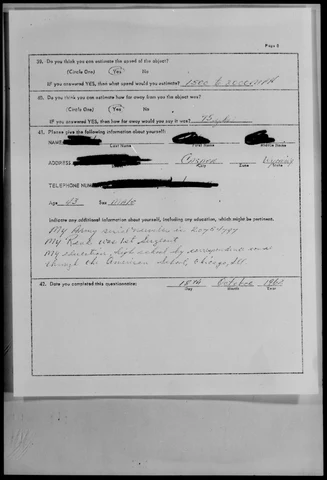 Page 8
39. Do you think you can estimate the speed of the object?
(Circle One) Yes No
IF you answered YES, then what speed would you estimate? 1500 to 2000 MPH
40. Do you think you can estimate how far away from you the object was?
(Circle One) Yes No
IF you answered YES, then how far away would you say it was?
41. Please give the following information about yourself:
NAME
Last Name First Name Middle Name
ADDRESS Casper Wyoming
Street City Zone State
TELEPHONE NUM
Age 43 Sex Male
Indicate any additional information about yourself, including any education, which might be pertinent.
My Army serial number is
My Rank was 1st Sergeant
My education, high school by correspondence
through the American School, Chicago, Ill
42. Date you completed this questionnaire: 18th October 1963
Day Month Year